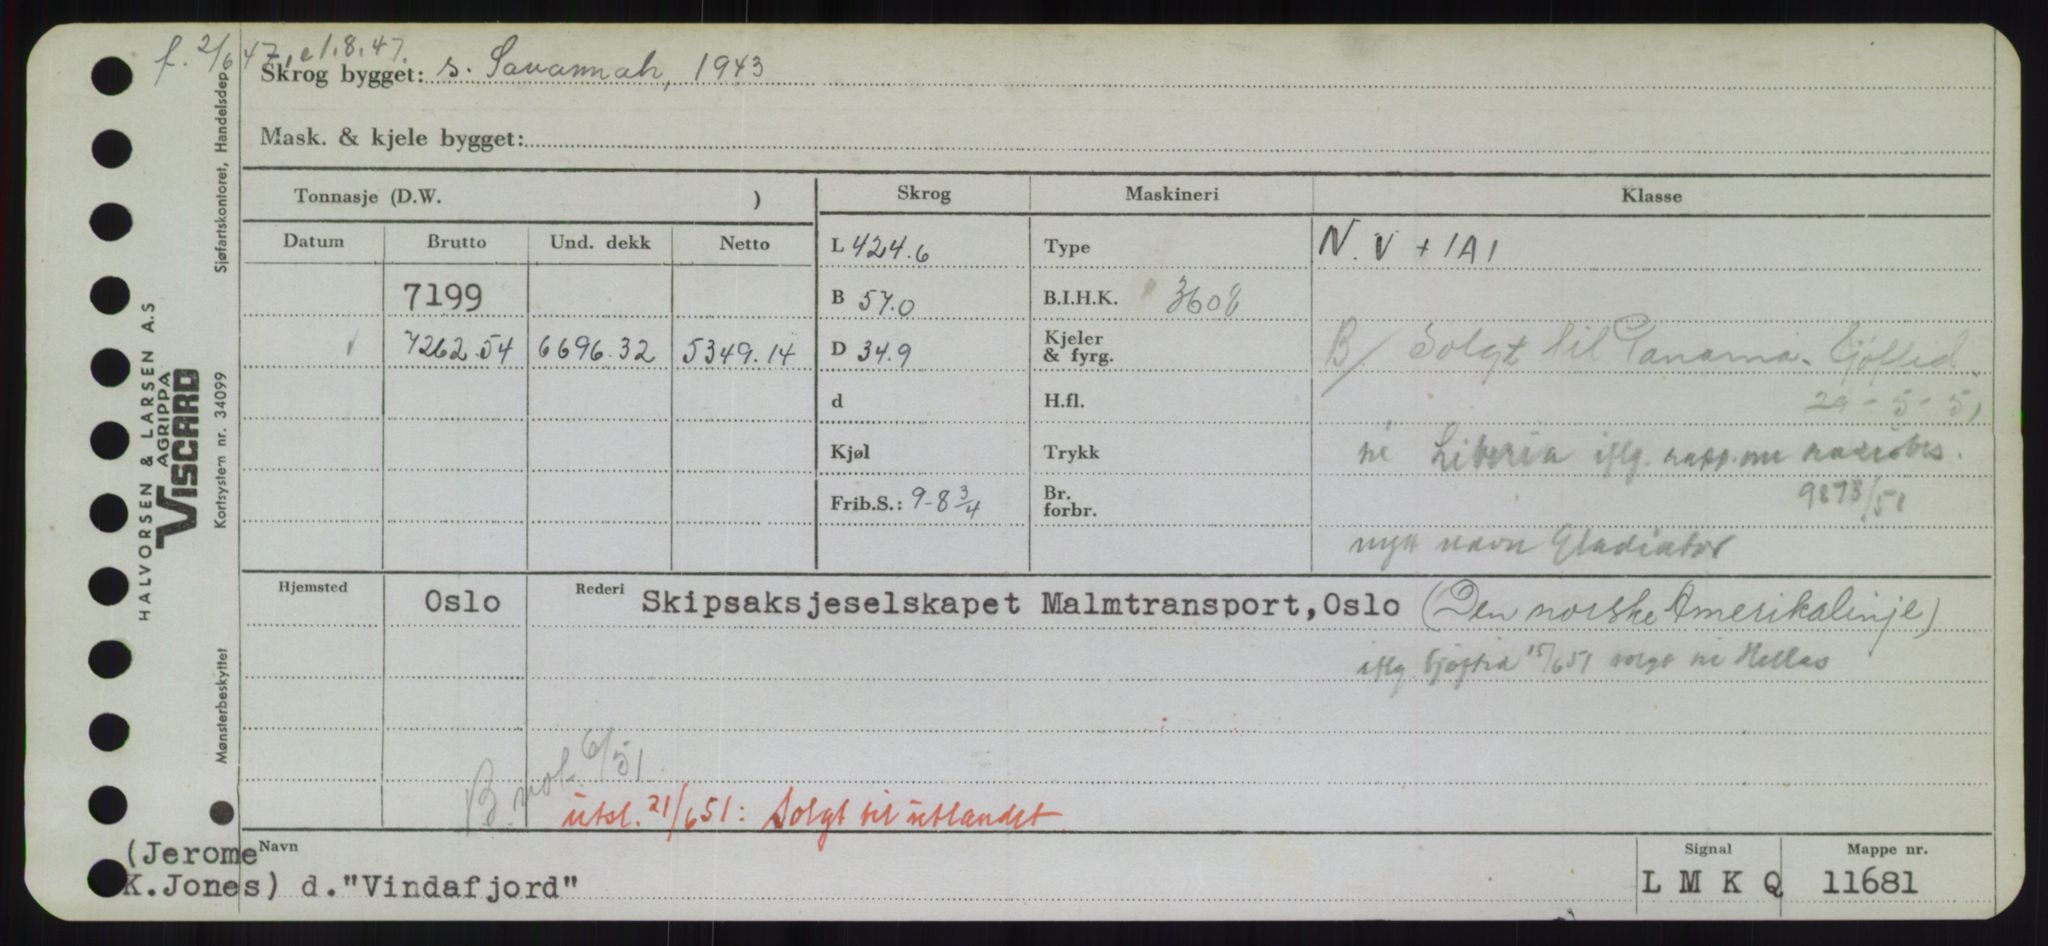 f. 2/6 47, e 1.8.47.
Skrog bygget: s. Savannah, 1943
Mask. & kjele bygget:
Tonnasje (D.W. )
Skrog
Maskineri
Klasse
Datum Brutto Und. dekk Netto
L 424.6
Type
N.V + 1A1
7199
B 57.0
B.I.H.K. 3608
7262.54 6696.32 5349.14
D 34.9
Kjeler
& fyrg.
B/ Solgt til Panama. Sjøftid.
29-5-51
d
H.fl.
Kjøl
Trykk
til Liberia iflg. rapp. om
9873/51
Frib.S.: 9-8 3/4
Br.
forbr.
nytt navn Gladiator
Hjemsted Oslo
Rederi Skipsaksjeselskapet Malmtransport, Oslo (Den norske Amerikalinje)
iflg Sjøftid 15/6 51 solgt til Hellas
B. not. 6/51
utsl. 21/6 51: Solgt til utlandet
Navn
(Jerome
K.Jones) d."Vindafjord"
Signal
L M K Q
Mappe nr.
11681
HALVORSEN & LARSEN A.S
AGRIPPA
VISCARD
Sjøfartskontoret, Handelsdep.
Kortsystem nr. 34099
Mønsterbeskyttet